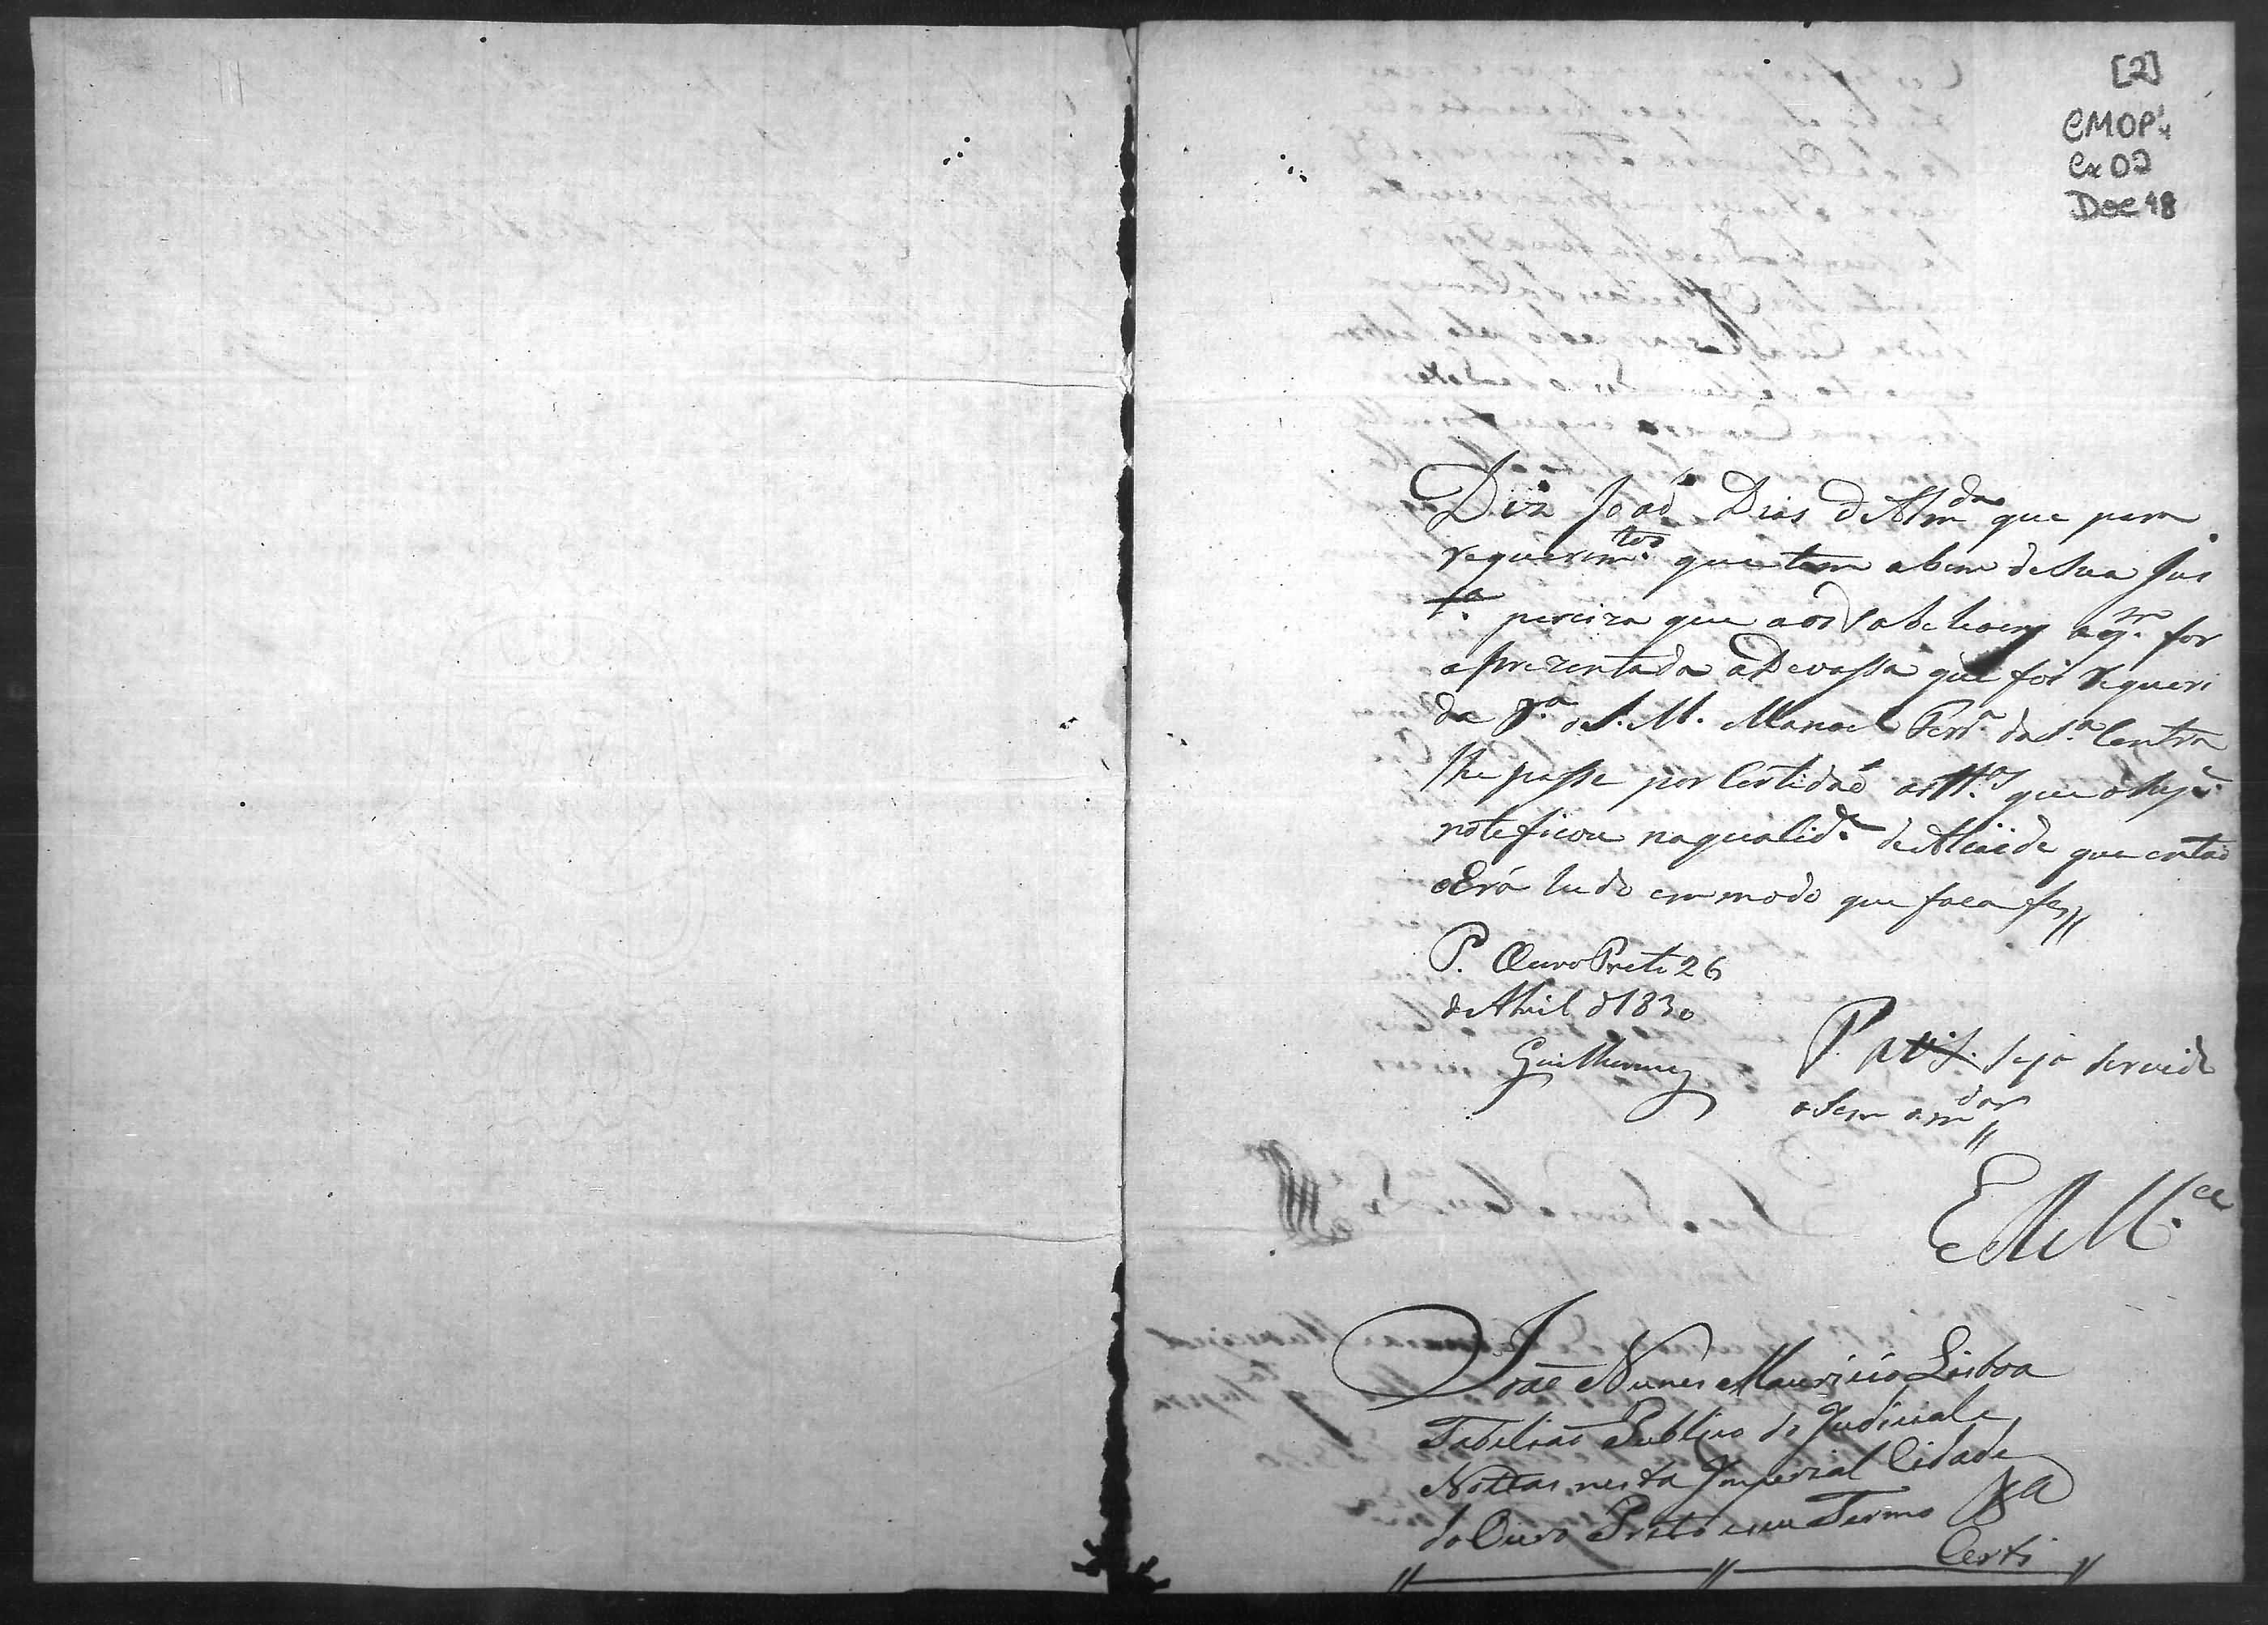 [2]
CMOP
Cx 02
Doc 48
Diz João Dias d'Alm.da que para
requerim.tos que tem a bem de Sua Jus
t.a perciza que aos Tabeliaens a q.m for
aprezentada a Devassa que foi requeri
da p.a o S. M. Manoel Ferr.a da S.a Contra
lhe passe por Certidaõ as tt.as que o Sup.e
noteficou na qualid.e de Alcaide que entaõ
Erá tudo em modo que faca fe //
P. Ouro Preto 26
de Abril d 1830
Guilherme
P. a V. S. seja Servido
o
E R M.ce
Joaõ Nunes Mauricio Lisboa
Tabeliaõ Publico do Judicial e
Nottas nesta Imperial Cidade
do Ouro Preto e seu Termo &a
Certi